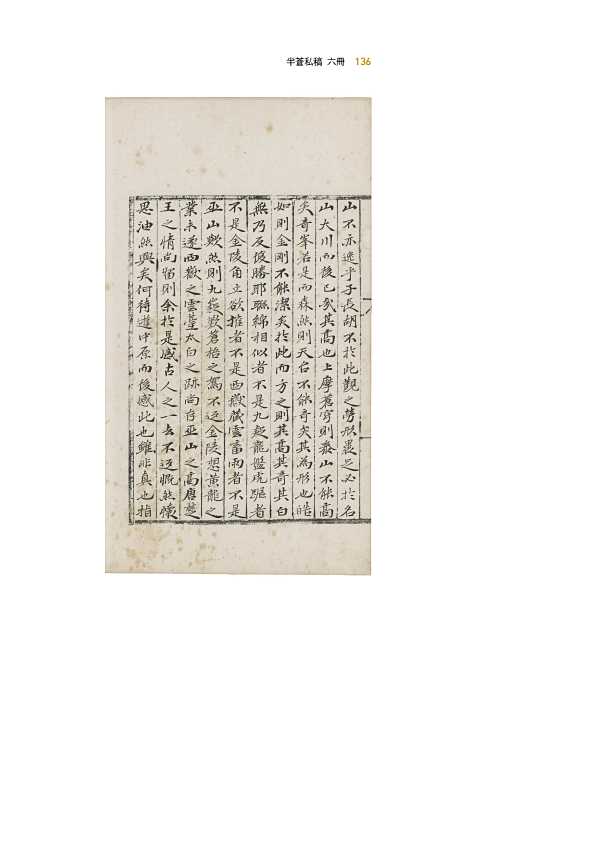 半蒼私稿 六冊 136
山不亦逸乎子長胡不於此觀之勞形裹足必於名
山大川而後已哉其高也上摩蒼穹則泰山不能高
矣奇峯若是而森然則天台不能奇矣其為形也皓
如則金剛不能潔矣於此而方之則其高其奇其白
無乃反復勝耶聯綿相似者不是九疑龍盤虎踞者
不是金陵角立欲摧者不是西嶽藏雲蓄雨者不是
巫山歟然則九嶷歎蒼梧之駕不返金陵想黃龍之
業未遂西歎之雲臺太白之跡尚存巫山之高唐楚
王之情尚留則余於是感古人之一去不返慨然懷
思油然興矣何待遊中原而後感此也雖非真也指